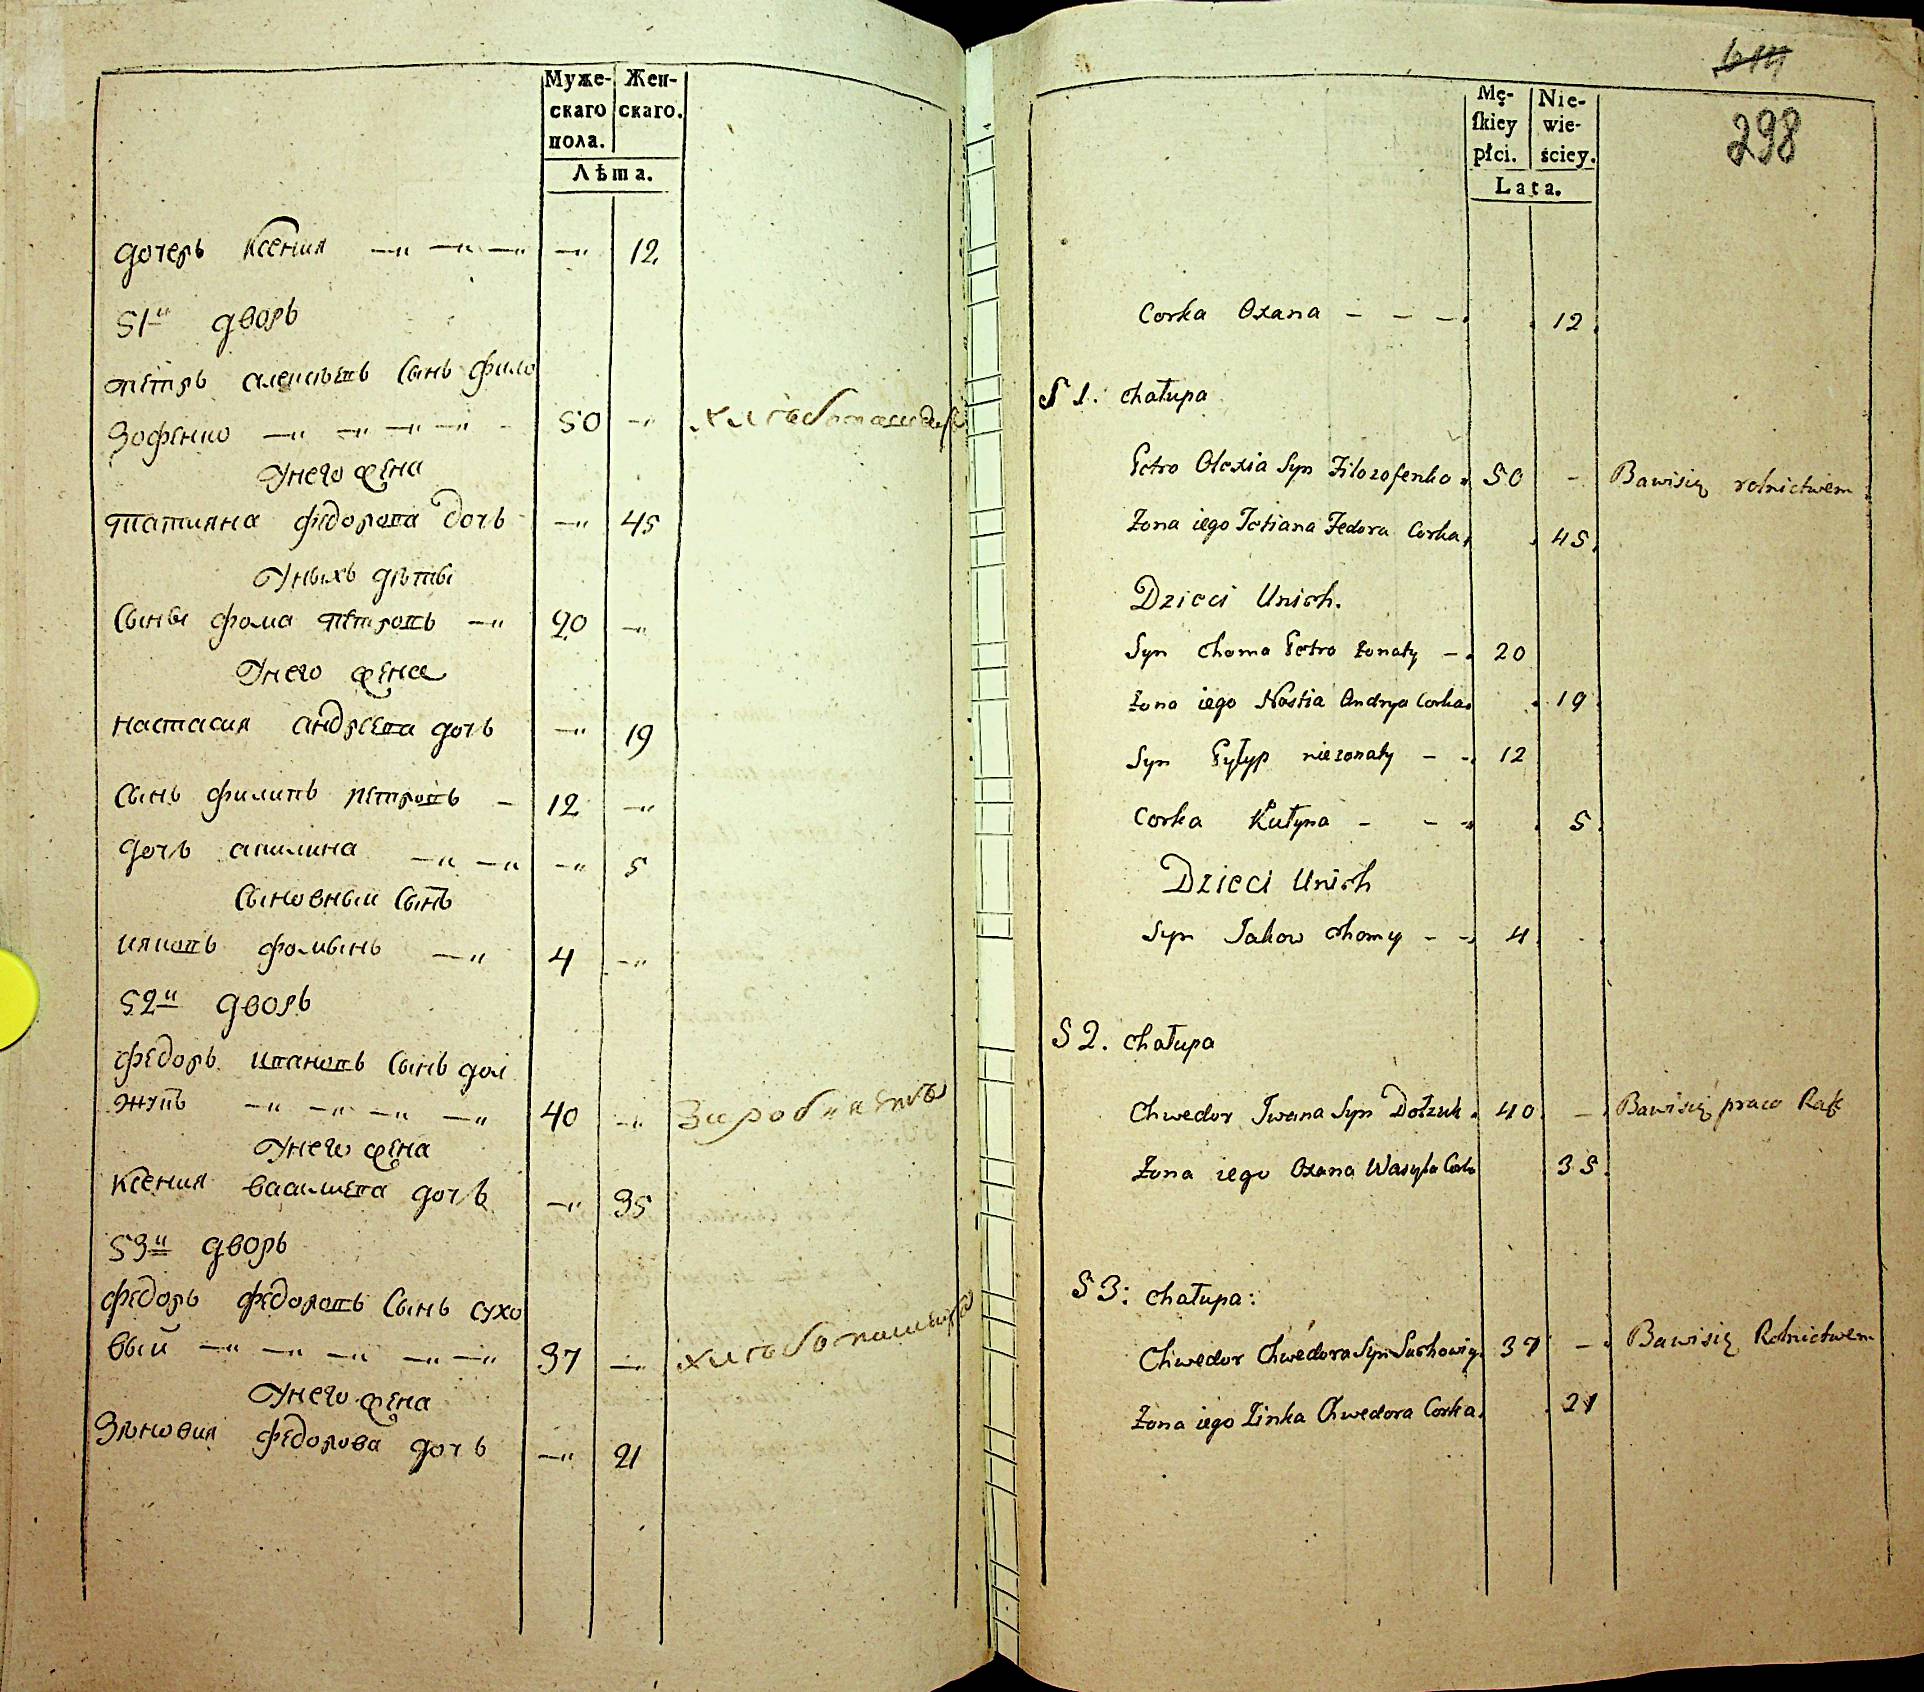 Муже-
скаго
пола.
Жен-
скаго.
Лѣта.
дочерь Ксения —„ —„ —„ —„ 12
51й дворъ
петръ алексѣевъ сынъ фило
зофенко —„ —„ —„ —„ 50 —„ хлѣбопашецъ
Унего жена
татияна федорова дочь —„ 45
Уныхъ дѣти
Сынъ фома петровъ —„ 20 —„
Унего жена
настасия андреева дочь —„ 19
Сынъ филипъ петровъ — 12 —„
дочь акилина —„ —„ —„ 5
Сыновный сынъ
ияковъ фомынъ —„ 4 —„
52й дворъ
федоръ ивановъ сынъ дол
жукъ —„ —„ —„ —„ 40 —„
Унего жена
Ксения василиева дочь —„ 35
53й дворъ
федоръ федоровъ сынъ сухо
вый —„ —„ —„ —„ —„ 37 —„ хлѣбопашецъ
Унего жена
Зѣновия федорова дочь —„ 21
614
298
Mę-
ſkiey
płci.
Nie-
wie-
ściey.
Lata.
Corka Oxana – – – 12
51. chałupa
Petro Olexia Syn Filozofenko 50 – Bawisię rolnictwem
Żona iego Tetiana Fedora Corka 45
Dzieci Unich.
Syn Choma Petro żonaty – 20
Żona iego Nastia Andrya Corka 19
Syn Pyłyp nieżonaty – – 12
Corka Kułyna – – – 5
Dzieci Unich
Syn Jakow Chomy – – 4 –
52. chałupa
Chwedor Iwana Syn Dołżuk 40 – Bawisię praco Rąk
Żona iego Oxana Wasyla Corka 35
53: chałupa:
Chwedor Chwedora Syn Suchowiy 37 – Bawisię Rolnictwem
Żona iego Zinka Chwedora Corka 21